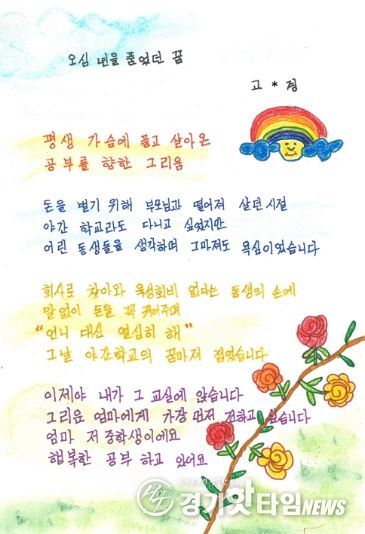 오십 년을 품었던 꿈
고 * 정
평생 가슴에 품고 살아온
공부를 향한 그리움
돈을 벌기 위해 부모님과 떨어져 살던 시절
야간 학교라도 다니고 싶었지만
어린 동생들을 생각하며 그마저도 욕심이었습니다
회사로 찾아와 육성회비 없다는 동생의 손에
말없이 돈을 꼭 쥐어주며
"언니 대신 열심히 해"
그날 야간학교의 꿈마저 접었습니다
이제야 내가 그 교실에 앉습니다
그리운 엄마에게 가장 먼저 전하고 싶습니다
엄마 저 중학생이에요
행복한 공부 하고 있어요
경기핫타임NEWS